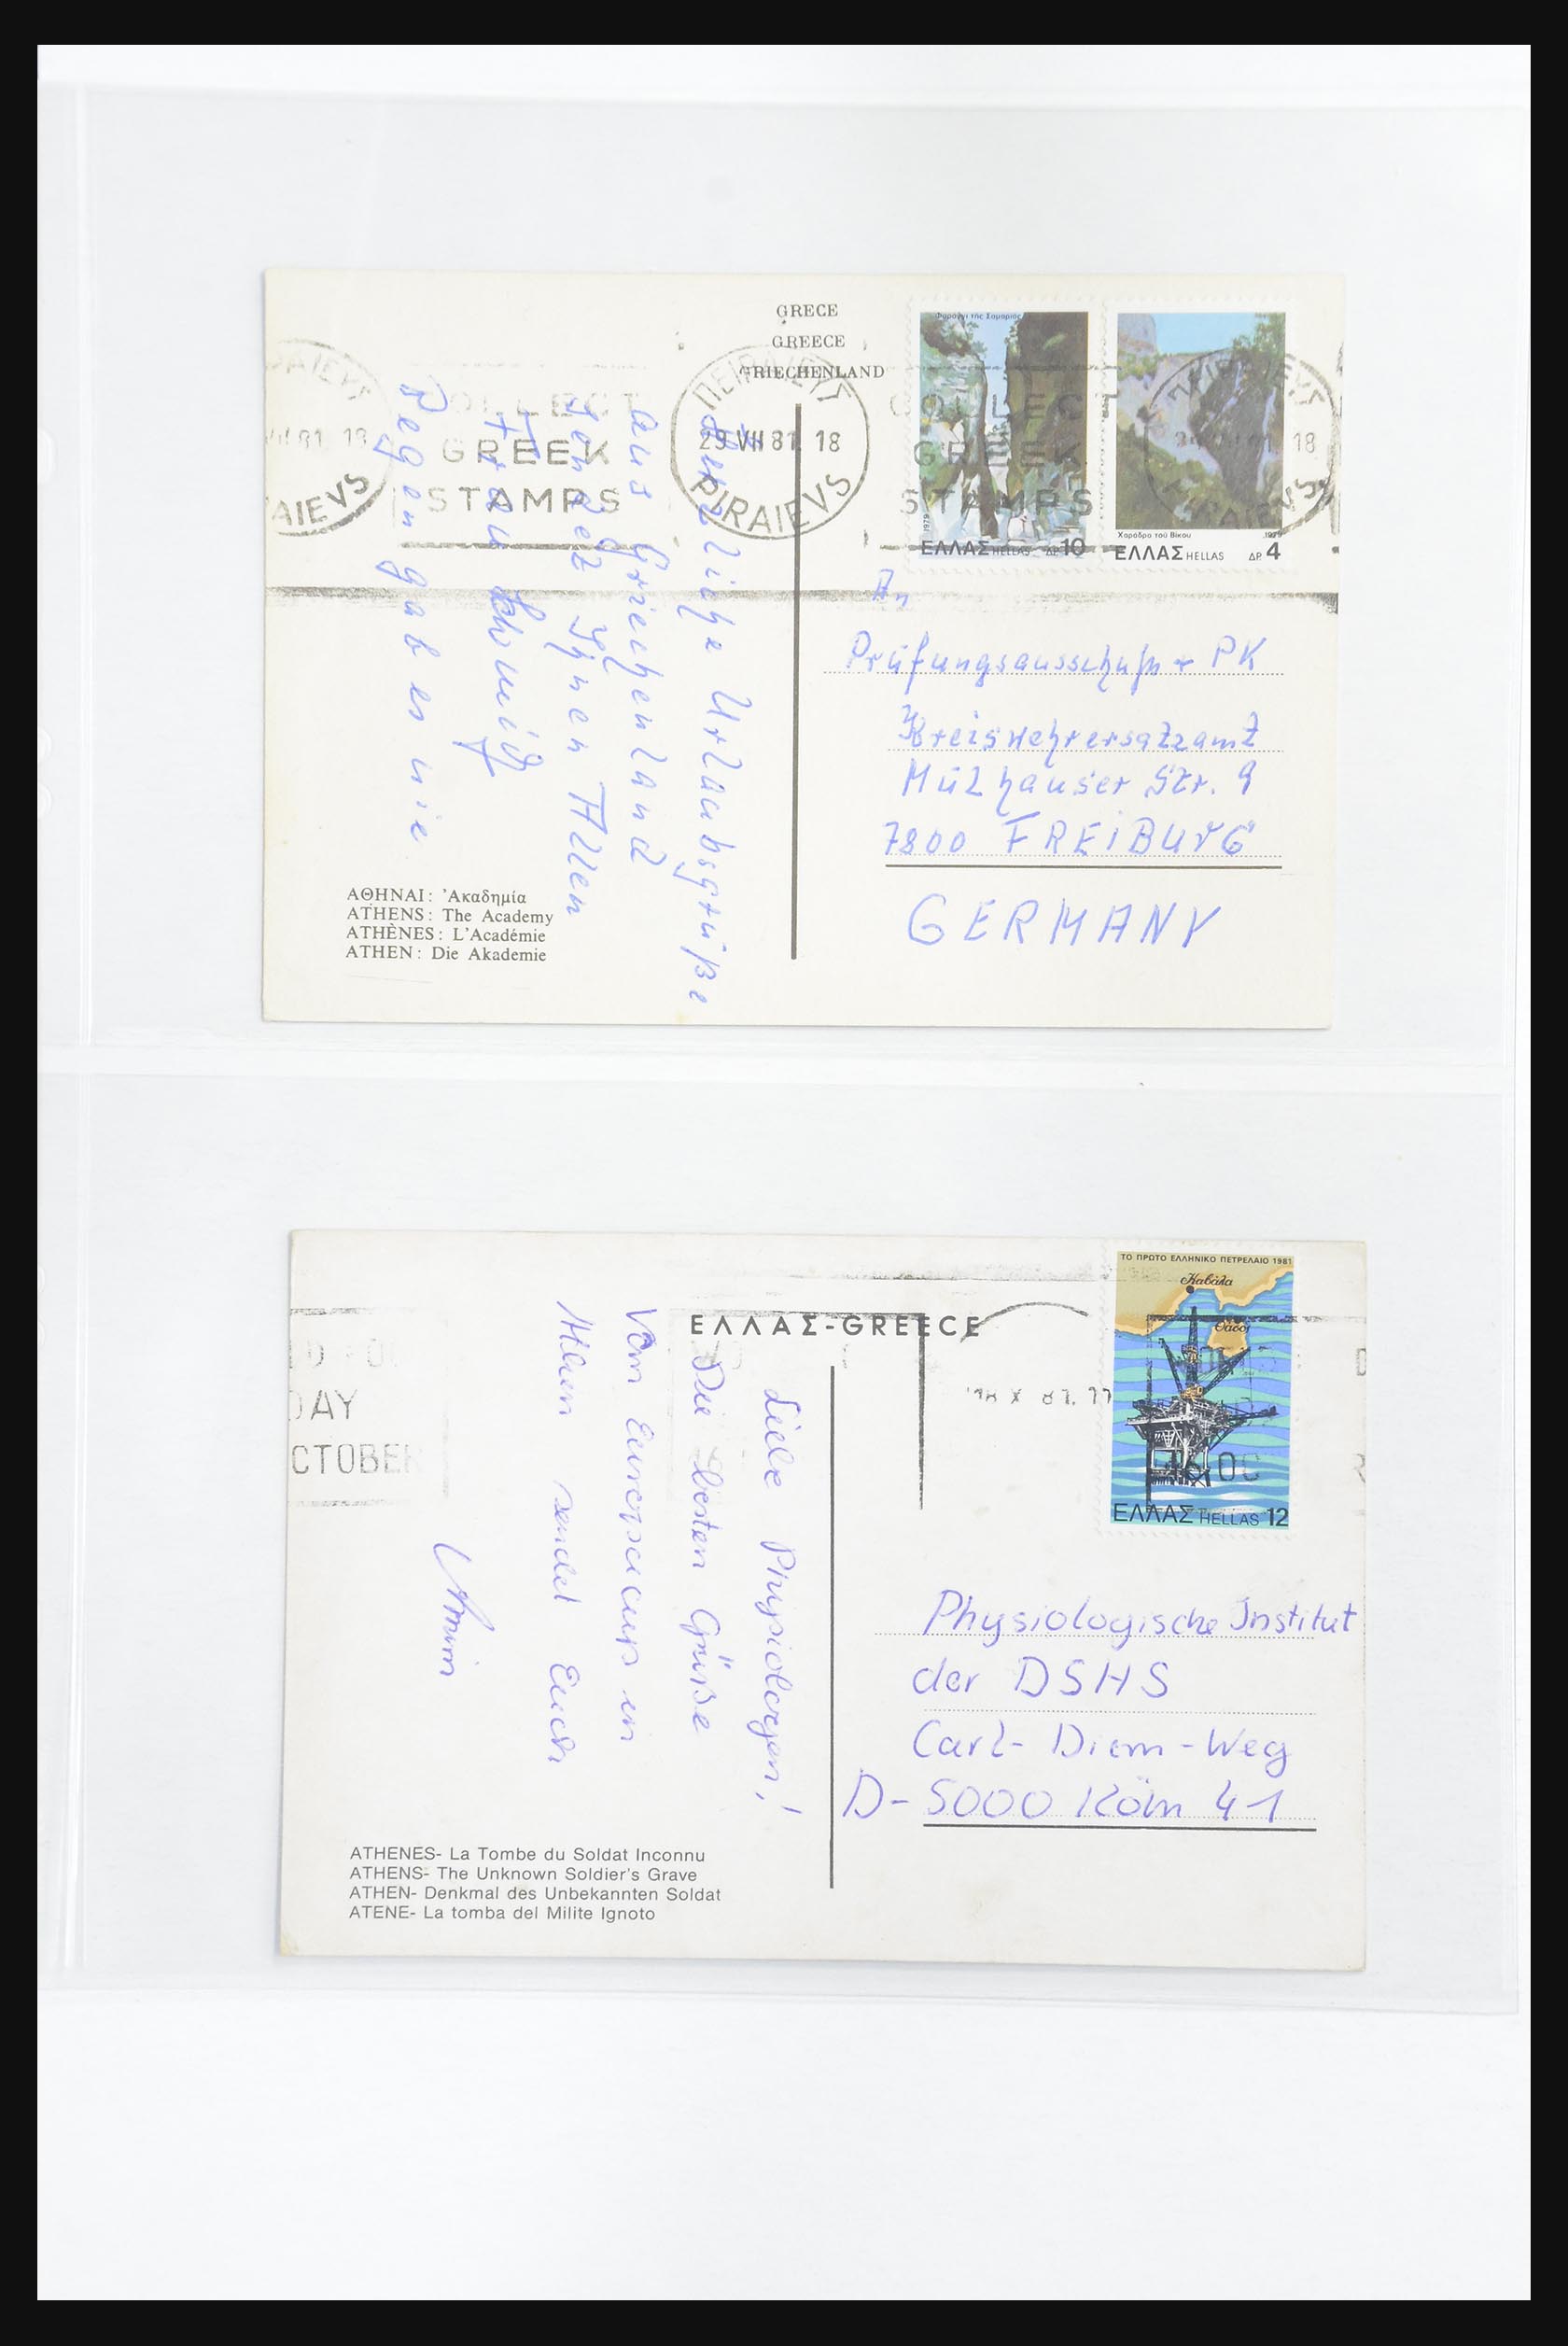 GRECE
GREECE
GRIECHENLAND
ΠΕΙΡΑΙΕΥΣ
29 VII 81 18
PIRAIEVS
COLLECT
GREEK
STAMPS
COLLECT
GREEK
STAMPS
VII 81 18
RAIEVS
18
PIRAIEVS
Φαράγγι της Σαμαριάς
1979
ΕΛΛΑΣ HELLAS ΔΡ. 10
Χαράδρα τού Βίκου 1979
ΕΛΛΑΣ HELLAS ΔΡ. 4
Herzliche Urlaubsgrüße
aus Griechenland
sendet Ihnen Allen
Frau Schmid
Regen gab es nie
An
Prüfungsausschuß + PK
Kreiswehrersatzamt
Mülhauser Str. 9
7800 FREIBURG
GERMANY
ΑΘΗΝΑΙ: Ἀκαδημία
ATHENS: The Academy
ATHÈNES: L'Académie
ATHEN: Die Akademie
ΕΛΛΑΣ-GREECE
ΤΟ ΠΡΩΤΟ ΕΛΛΗΝΙΚΟ ΠΕΤΡΕΛΑΙΟ 1981
Καβάλα
Θάσος
ΕΛΛΑΣ HELLAS 12
DAY
OCTOBER
18 X 81. 11
Liebe Physiologen!
Die besten Grüße
vom Europacup in
Athen sendet Euch
Armin
Physiologische Institut
der DSHS
Carl-Diem-Weg
D-5000 Köln 41
ATHENES- La Tombe du Soldat Inconnu
ATHENS- The Unknown Soldier's Grave
ATHEN- Denkmal des Unbekannten Soldat
ATENE- La tomba del Milite Ignoto